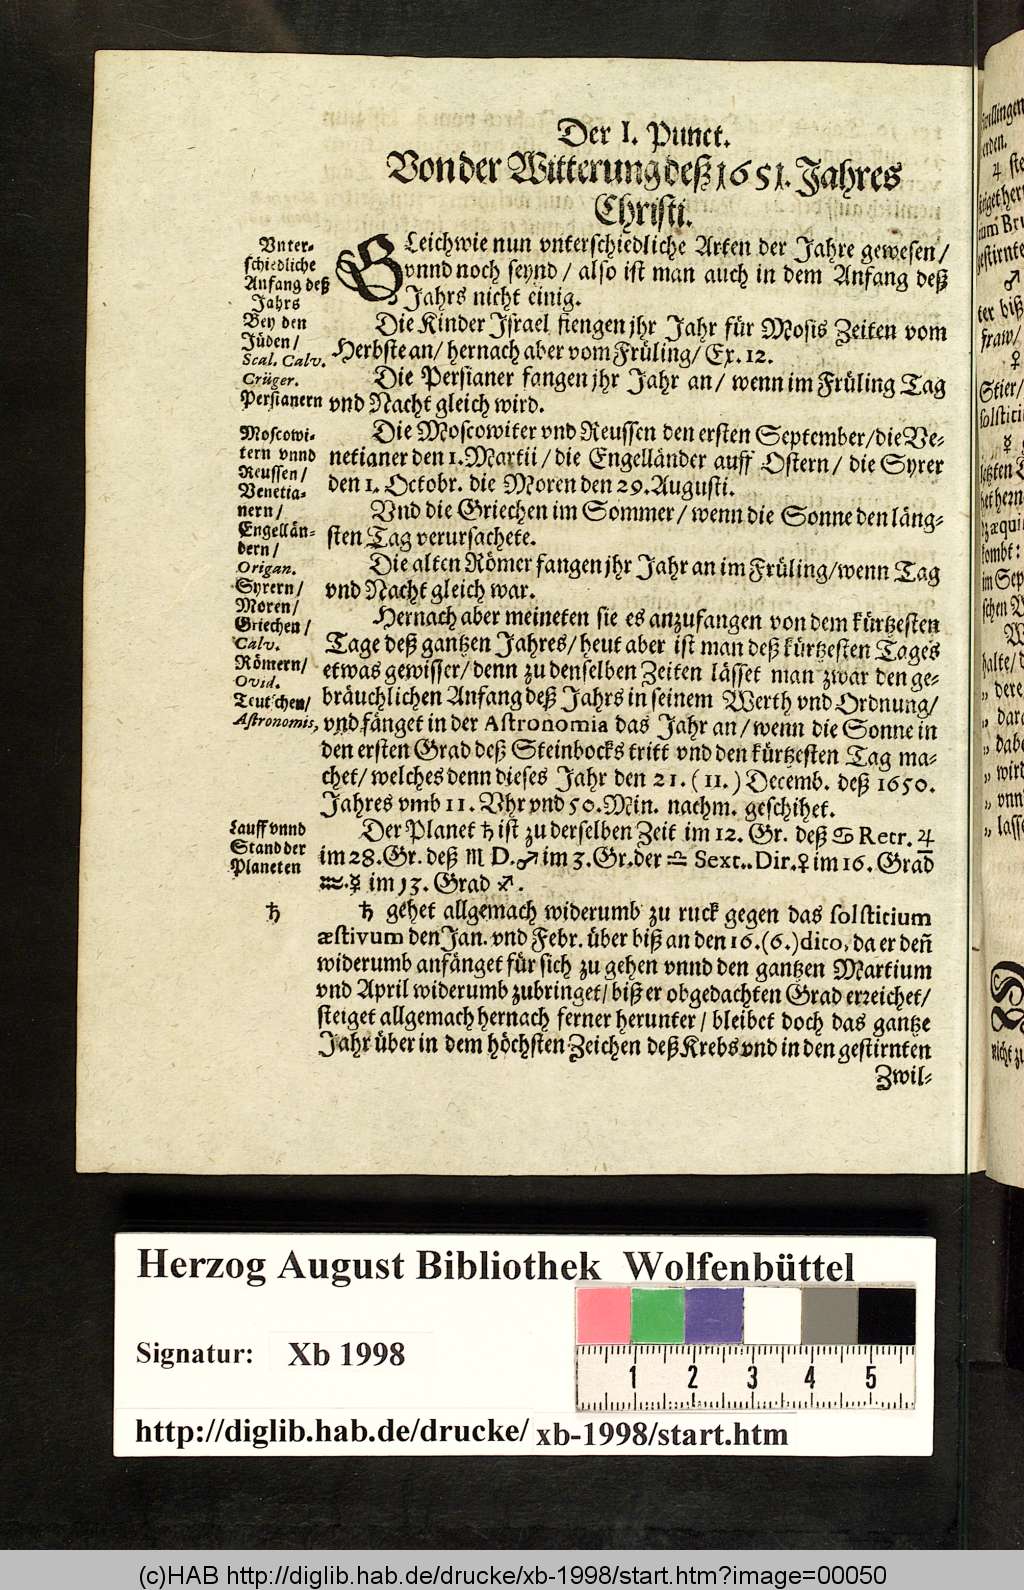 Der I. Punct.
Von der Witterung deß 1651. Jahres
Christi.
Vnter-
schiedliche
Anfang deß
Jahrs
Bey den
Jüden /
Scal. Calv.
Crüger.
Persianern
Moscowi-
tern vnnd
Reussen /
Venetia-
nern /
Engellän-
dern /
Origan.
Syrern /
Moren /
Griechen /
Calv.
Römern /
Ovid.
Teutschen /
Astronomis,
Lauff vnnd
Stand der
Planeten
♄
GLeichwie nun vnterschiedliche Arten der Jahre gewesen /
vnnd noch seynd / also ist man auch in dem Anfang deß
Jahrs nicht einig.
Die Kinder Israel fiengen jhr Jahr für Mosis Zeiten vom
Herbste an / hernach aber vom Früling / Ex. 12.
Die Persianer fangen jhr Jahr an / wenn im Früling Tag
vnd Nacht gleich wird.
Die Moscowiter vnd Reussen den ersten September / die Ve-
netianer den 1. Martii / die Engelländer auff Ostern / die Syrer
den 1. Octobr. die Moren den 29. Augusti.
Vnd die Griechen im Sommer / wenn die Sonne den läng-
sten Tag verursachete.
Die alten Römer fangen jhr Jahr an im Früling / wenn Tag
vnd Nacht gleich war.
Hernach aber meineten sie es anzufangen von dem kürtzesten
Tage deß gantzen Jahres / heut aber ist man deß kürtzesten Tages
etwas gewisser / denn zu denselben Zeiten lässet man zwar den ge-
bräuchlichen Anfang deß Jahrs in seinem Werth vnd Ordnung /
vnd fänget in der Astronomia das Jahr an / wenn die Sonne in
den ersten Grad deß Steinbocks tritt vnd den kürtzesten Tag ma-
chet / welches denn dieses Jahr den 21. (11.) Decemb. deß 1650.
Jahres vmb 11. Vhr vnd 50. Min. nachm. geschihet.
Der Planet ♄ ist zu derselben Zeit im 12. Gr. deß ♋ Retr. ♃
im 28. Gr. deß ♏ D. ♂ im 3. Gr. der ♎ Sext.. Dir. ♀ im 16. Grad
♒. ☿ im 13. Grad ♐.
♄ gehet allgemach widerumb zu ruck gegen das solsticium
æstivum den Jan. vnd Febr. über biß an den 16. (6.) dito, da er deñ
widerumb anfänget für sich zu gehen vnnd den gantzen Martium
vnd April widerumb zubringet / biß er obgedachten Grad erreichet /
steiget allgemach hernach ferner herunter / bleibet doch das gantze
Jahr über in dem höchsten Zeichen deß Krebs vnd in den gestirnten
Zwil-
Herzog August Bibliothek Wolfenbüttel
Signatur: Xb 1998
1 2 3 4 5
http://diglib.hab.de/drucke/ xb-1998/start.htm
(c)HAB http://diglib.hab.de/drucke/xb-1998/start.htm?image=00050